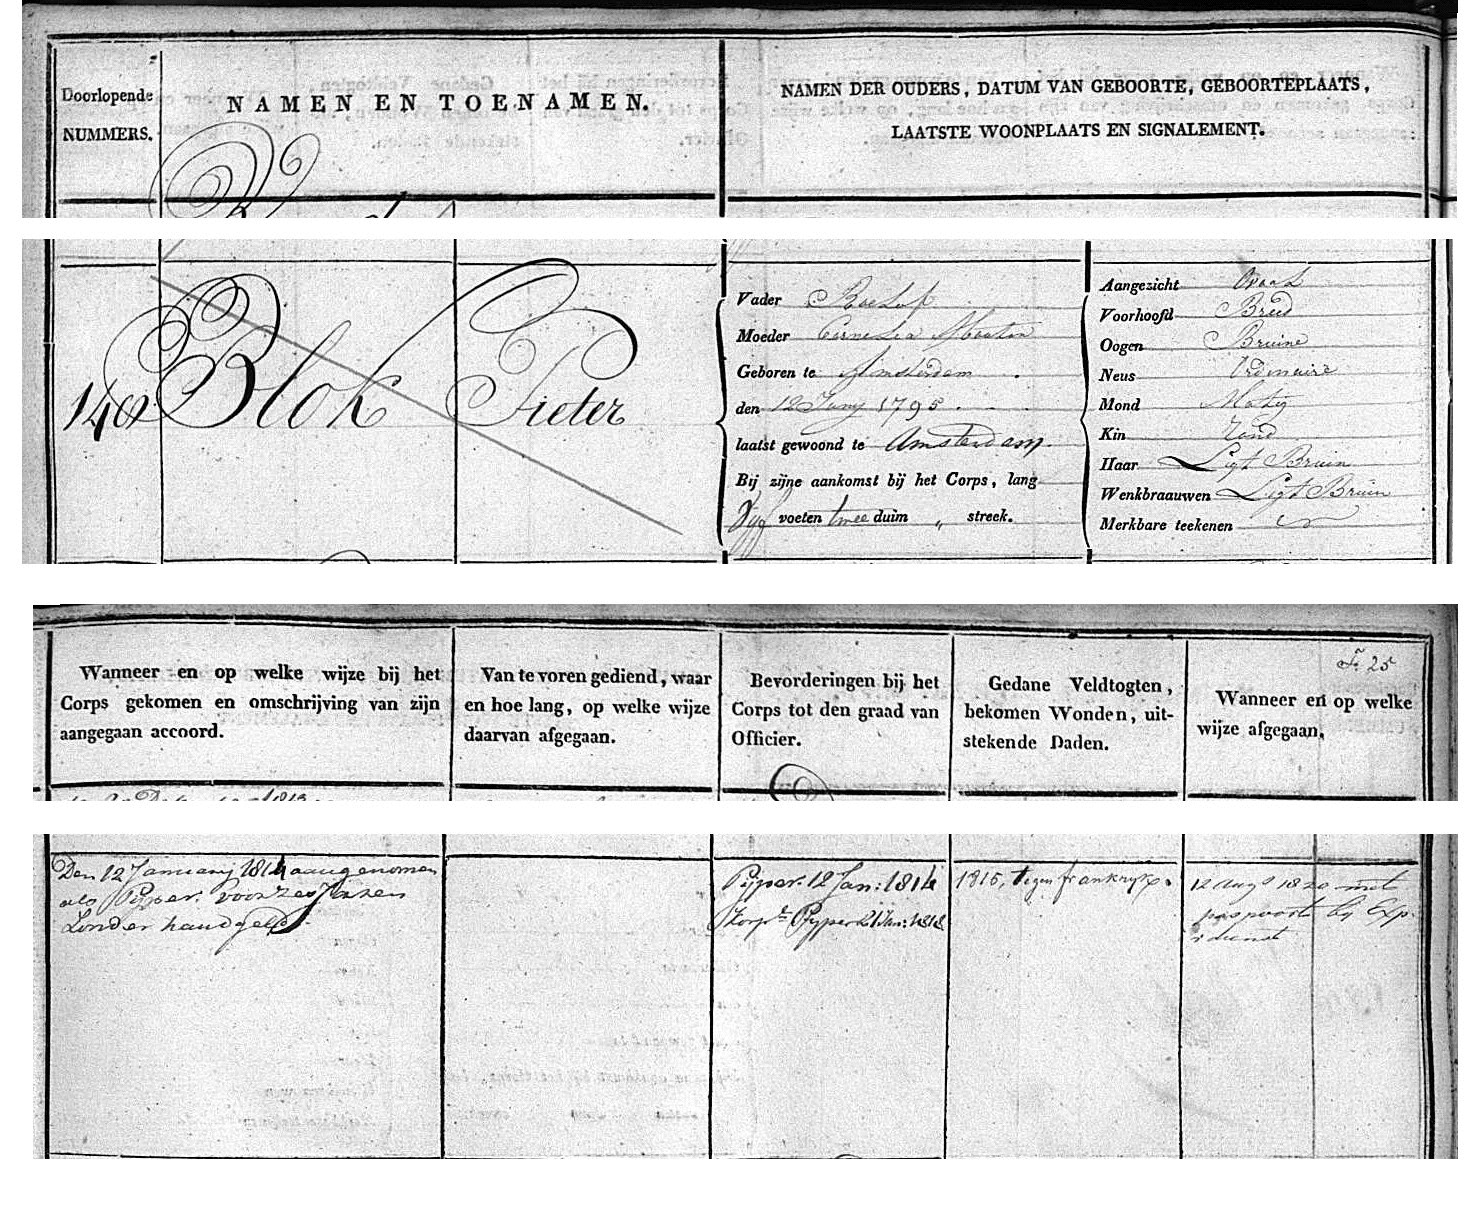 Doorlopende
NUMMERS.
NAMEN EN TOENAMEN.
NAMEN DER OUDERS, DATUM VAN GEBOORTE, GEBOORTEPLAATS,
LAATSTE WOONPLAATS EN SIGNALEMENT.
Blok Pieter
Vader Roelof
Moeder Cornelia
Geboren te Amsterdam
den 12 Juny 1795.
laatst gewoond te Amsterdam.
Bij zijne aankomst bij het Corps, lang
Vyf voeten twee duim „ streek.
Aangezicht Ovaal
Voorhoofd Breed
Oogen Bruine
Neus Ordinaire
Mond Matig
Kin Rond
Haar Ligt Bruin
Wenkbraauwen Ligt Bruin
Merkbare teekenen
Fo. 25
Wanneer en op welke wijze bij het
Corps gekomen en omschrijving van zijn
aangegaan accoord.
Van te voren gediend, waar
en hoe lang, op welke wijze
daarvan afgegaan.
Bevorderingen bij het
Corps tot den graad van
Officier.
Gedane Veldtogten,
bekomen Wonden, uit-
stekende Daden.
Wanneer en op welke
wijze afgegaan.
Den 12 January 1814 aangenomen
als Pyper. voor zes Jaren
Zonder handgeld.
Pyper. 12 Jan: 1814
Korpl. Pyper 21 Jan: 1818
1815, tegen frankryk.
12 Augs 1820 met
paspoort by Exp.
v dienst